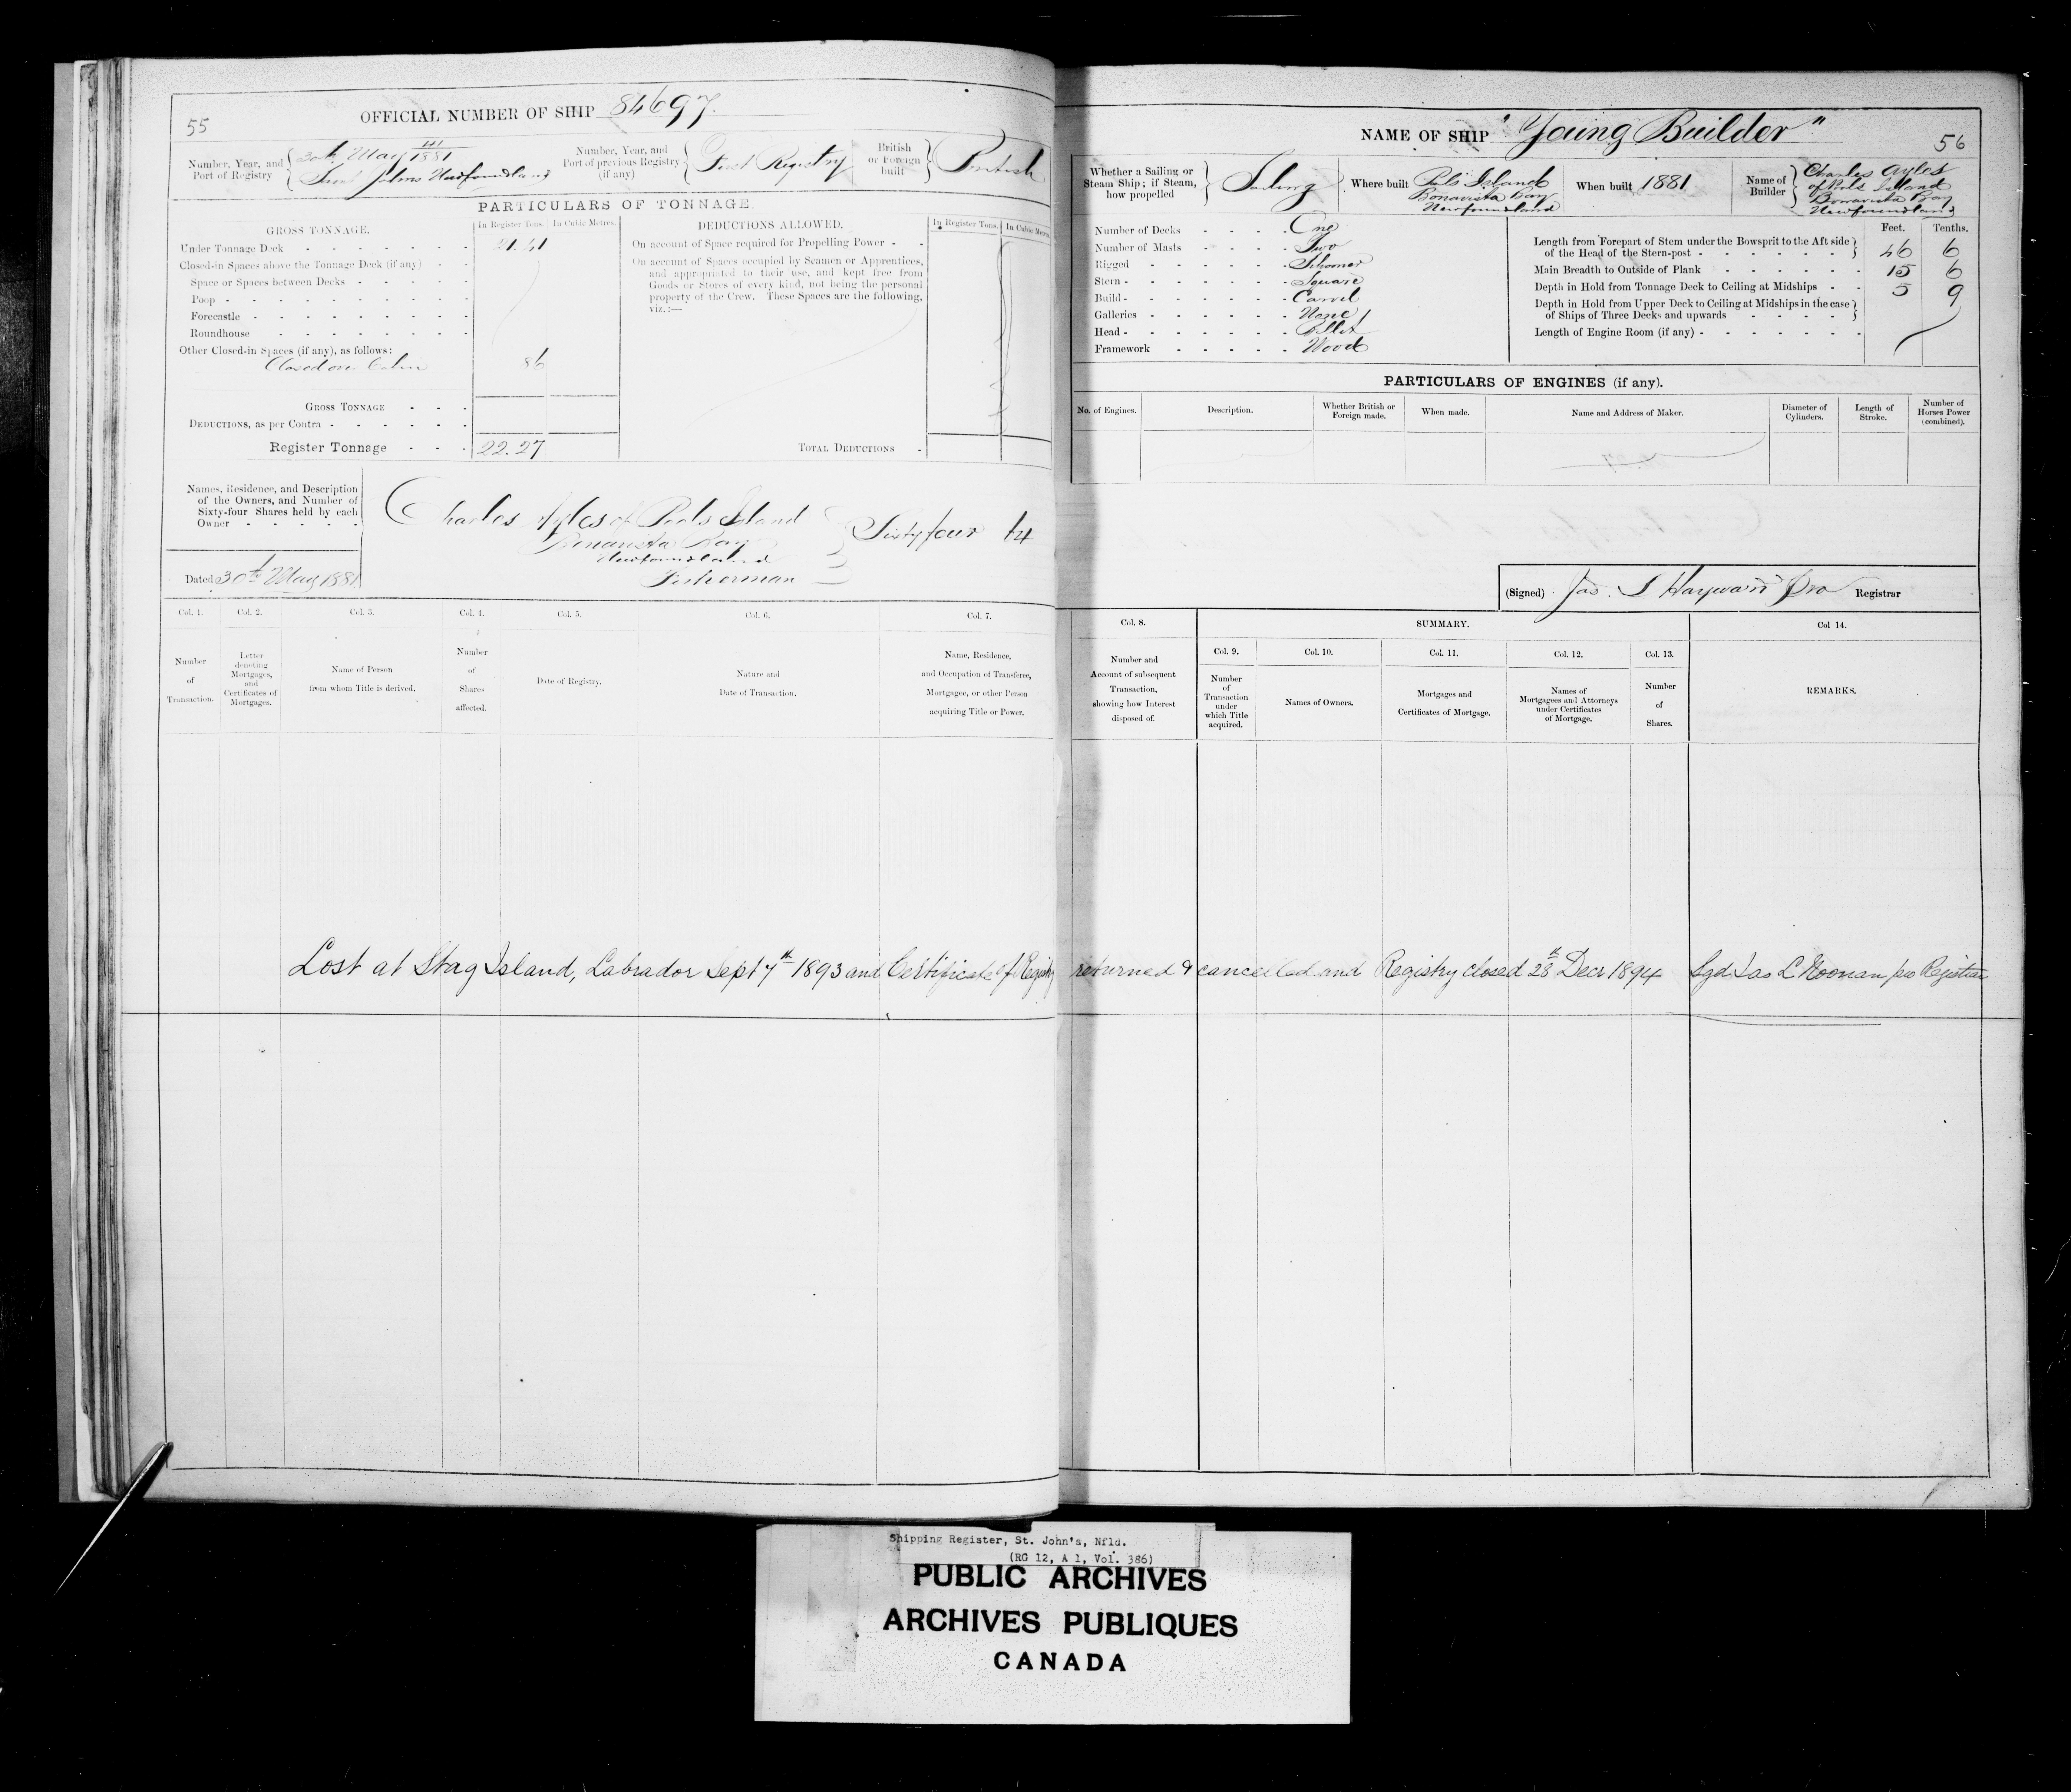 55
OFFICIAL NUMBER OF SHIP 84697.
Number, Year, and Port of Registry
30th May 1881
Saint Johns Newfoundland
Number, Year, and Port of previous Registry (if any)
First Registry
British or Foreign built
British
PARTICULARS OF TONNAGE.
GROSS TONNAGE.
In Register Tons.
In Cubic Metres.
Under Tonnage Deck 21.41
Closed-in Spaces above the Tonnage Deck (if any)
Space or Spaces between Decks
Poop
Forecastle
Roundhouse
Other Closed-in Spaces (if any), as follows:
Closed on Cabin 86
GROSS TONNAGE
DEDUCTIONS, as per Contra
Register Tonnage 22.27
DEDUCTIONS ALLOWED.
In Register Tons.
In Cubic Metres
On account of Space required for Propelling Power
On account of Spaces occupied by Seamen or Apprentices,
and appropriated to their use, and kept free from
Goods or Stores of every kind, not being the personal
property of the Crew. These Spaces are the following,
viz.:—
TOTAL DEDUCTIONS
Names, Residence, and Description
of the Owners, and Number of
Sixty-four Shares held by each
Owner
Charles Ayles of Pools Island
Bonavista Bay
Newfoundland
Fisherman
Sixty four 64
Dated 30th May 1881
Col. 1.
Number of Transaction.
Col. 2.
Letter denoting Mortgages, and Certificates of Mortgages.
Col. 3.
Name of Person from whom Title is derived.
Col. 4.
Number of Shares affected.
Col. 5.
Date of Registry.
Col. 6.
Nature and Date of Transaction.
Col. 7.
Name, Residence, and Occupation of Transferee, Mortgagee, or other Person acquiring Title or Power.
NAME OF SHIP "Young Builder"
56
Whether a Sailing or Steam Ship; if Steam, how propelled
Sailing
Where built
Pools Island
Bonavista Bay
Newfoundland
When built 1881
Name of Builder
Charles Ayles
of Pools Island
Bonavista Bay
Newfoundland
Number of Decks One
Number of Masts Two
Rigged Schooner
Stern Square
Build Carvel
Galleries None
Head Billet
Framework Wood
Feet. Tenths.
Length from Forepart of Stem under the Bowsprit to the Aft side
of the Head of the Stern-post 46 6
Main Breadth to Outside of Plank 15 6
Depth in Hold from Tonnage Deck to Ceiling at Midships 5 9
Depth in Hold from Upper Deck to Ceiling at Midships in the case
of Ships of Three Decks and upwards
Length of Engine Room (if any)
PARTICULARS OF ENGINES (if any).
No. of Engines.
Description.
Whether British or Foreign made.
When made.
Name and Address of Maker.
Diameter of Cylinders.
Length of Stroke.
Number of Horses Power (combined).
(Signed) Jas. S Hayward Pro Registrar
Col. 8.
Number and Account of subsequent Transaction, showing how Interest disposed of.
SUMMARY.
Col. 9.
Number of Transaction under which Title acquired.
Col. 10.
Names of Owners.
Col. 11.
Mortgages and Certificates of Mortgage.
Col. 12.
Names of Mortgagees and Attorneys under Certificates of Mortgage.
Col. 13.
Number of Shares.
Col 14.
REMARKS.
Lost at Stag Island, Labrador Sept 7th 1893 and Certificate of Registry returned & cancelled and Registry closed 28th Decr 1894 Sgd Jas L Noonan pro Registrar
Shipping Register, St. John's, Nfld.
(RG 12, A 1, Vol. 386)
PUBLIC ARCHIVES
ARCHIVES PUBLIQUES
CANADA